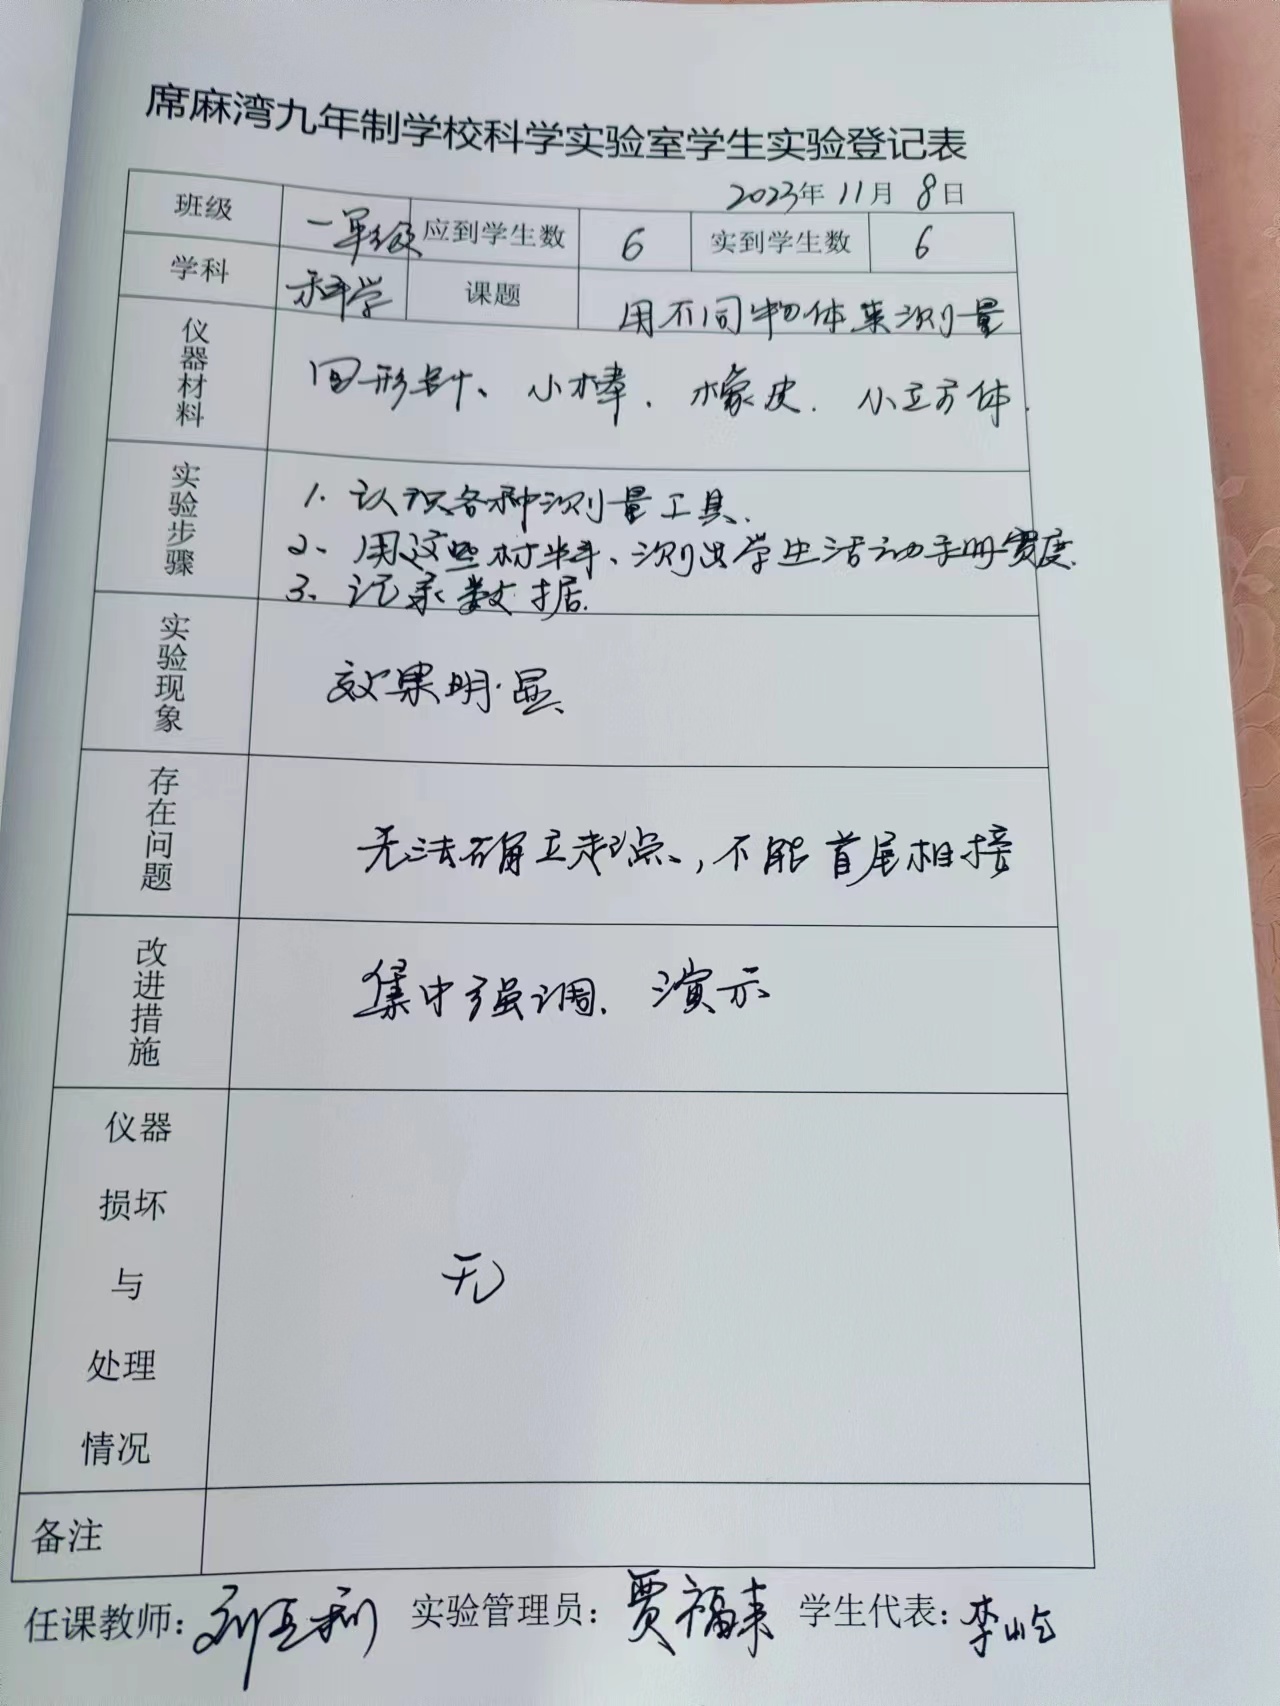 席麻湾九年制学校科学实验室学生实验登记表
2023年 11月 8日
班级 一年级 应到学生数 6 实到学生数 6
学科 科学 课题 用不同物体来测量
仪器材料 回形针、小棒、橡皮、小立方体
实验步骤 1、认识各种测量工具
2、用这些材料、测出学生活动手册宽度
3、记录数据
实验现象 效果明显
存在问题 无法确立起点，不能首尾相接
改进措施 集中强调、演示
仪器
损坏
与
处理
情况
无
备注
任课教师： 实验管理员：贾福来 学生代表：李屹